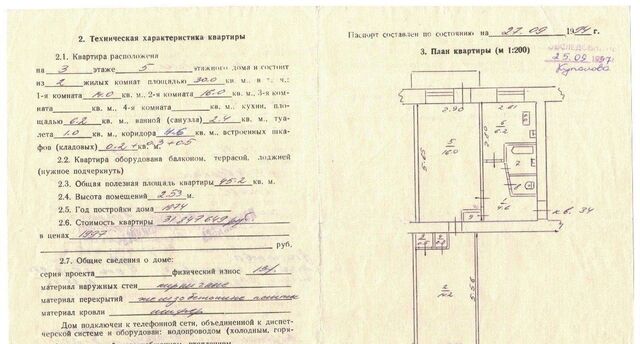 2. Техническая характеристика квартиры
2.1. Квартира расположена
на 3 этаже 5 этажного дома и состоит
из 2 жилых комнат площадью 30.0 кв. м., в т. ч.:
1-я комната 14.0 кв. м., 2-я комната 16.0 кв. м., 3-я ком-
ната кв. м., 4-я комната кв. м., кухни, пло-
щадью 6.2 кв. м., ванной (санузла) 2.4 кв. м., туа-
лета 1.0 кв. м., коридора 4.6 кв. м., встроенных шка-
фов (кладовых) 0.2 + 0.3 + 0.5 кв. м.
2.2. Квартира оборудована балконом, террасой, лоджией
(нужное подчеркнуть)
2.3. Общая полезная площадь квартиры 45.2 кв. м.
2.4. Высота помещений 2.53 м.
2.5. Год постройки дома 1974
2.6. Стоимость квартиры 31.847.649 руб.
в ценах 1997
руб.
2.7. Общие сведения о доме:
серия проекта физический износ 13%
материал наружных стен кирпичные
материал перекрытий железобетонные плиты
материал кровли шифер
Дом подключен к телефонной сети, объединенной к диспет-
черской системе и оборудован: водопроводом (холодным, горя-
Паспорт составлен по состоянию на 27.09 1994г.
3. План квартиры (м 1:200)
25.09 1997г.
2.90
2.61
5
16.0
5
6.2
5.65
2.60
2
3
1
4.6
9
кв. 34
2
14.2
5.56